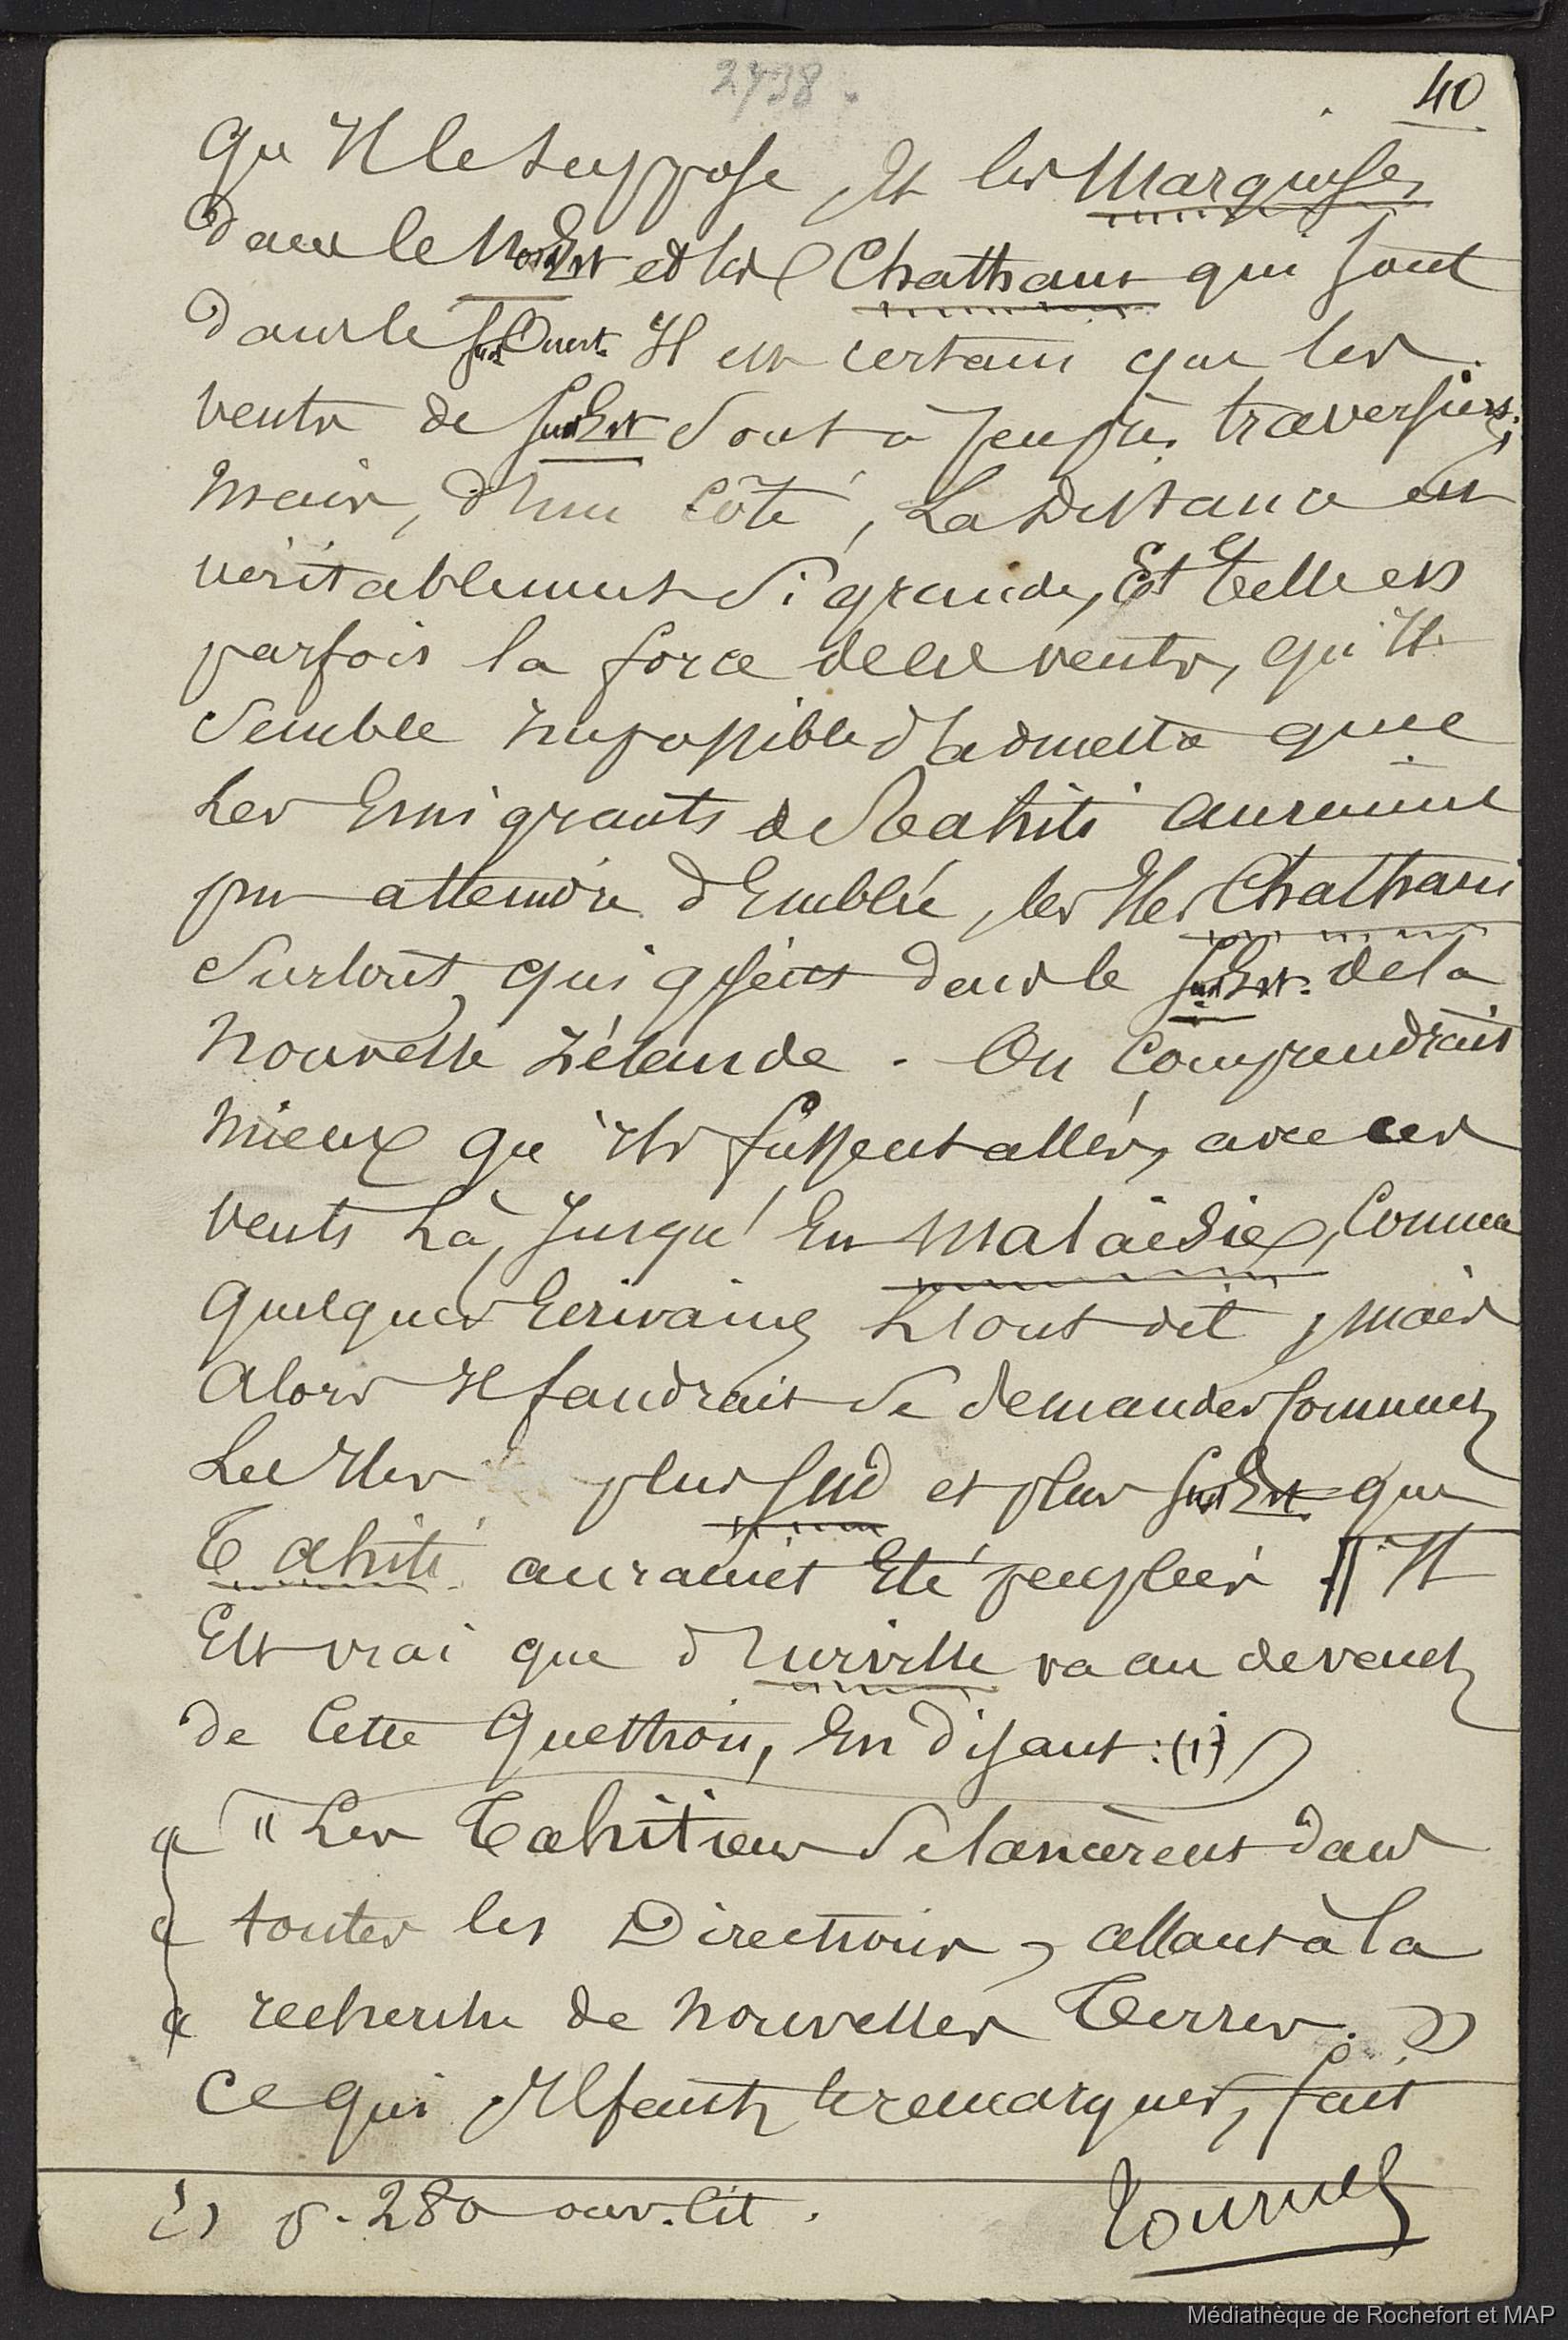 2738.
40
qu'Il le suppose, Et les Marquises
dans le Nord Est et les Chatham qui sont
dans le Sud Ouest. Il est certain que les
vents de Sud Est sont à peu près traversiers;
mais, d'un côté, La distance est
véritablement si grande, Et telle est
parfois la force de ces vents, qu'Il
semble Impossible d'admettre que
Les Emigrants de Tahiti auraient
pu atteindre d'Emblée, les Iles Chatham
surtout, qui gisent dans le Sud Est de la
Nouvelle Zélande. On comprendrait
mieux qu'Ils fussent allés, avec ces
vents Là, Jusqu'En Malaisie, Comme
quelques Ecrivains L'ont dit, mais
alors Il faudrait se demander Comment
Les Iles plus Sud et plus Sud Est que
Tahiti auraient Eté peuplées. || Il
Est vrai que d'Urville va au devant
de Cette Question, En disant: (1)
« " Les Tahitiens se lancèrent dans
« toutes les Directions, allant à la
« recherche de nouvelles Terres. »
Ce qui, Il faut le remarquer, fait
(1) p. 280 ouv. Cit.
Tournez
Médiathèque de Rochefort et MAP